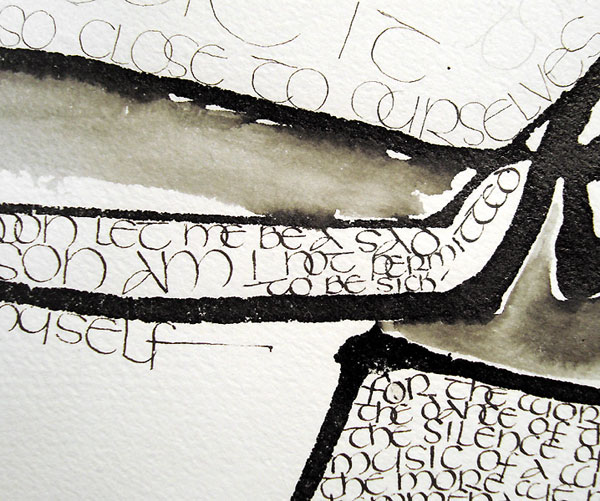 IT
SO CLOSE TO OURSELVES
LET ME BE A SAD
SON AM I NOT PERMITTED
TO BE SICK
MYSELF
FOR THE
THE DANCE OF
THE SILENCE OF
MUSIC OF A
THE MORE WE